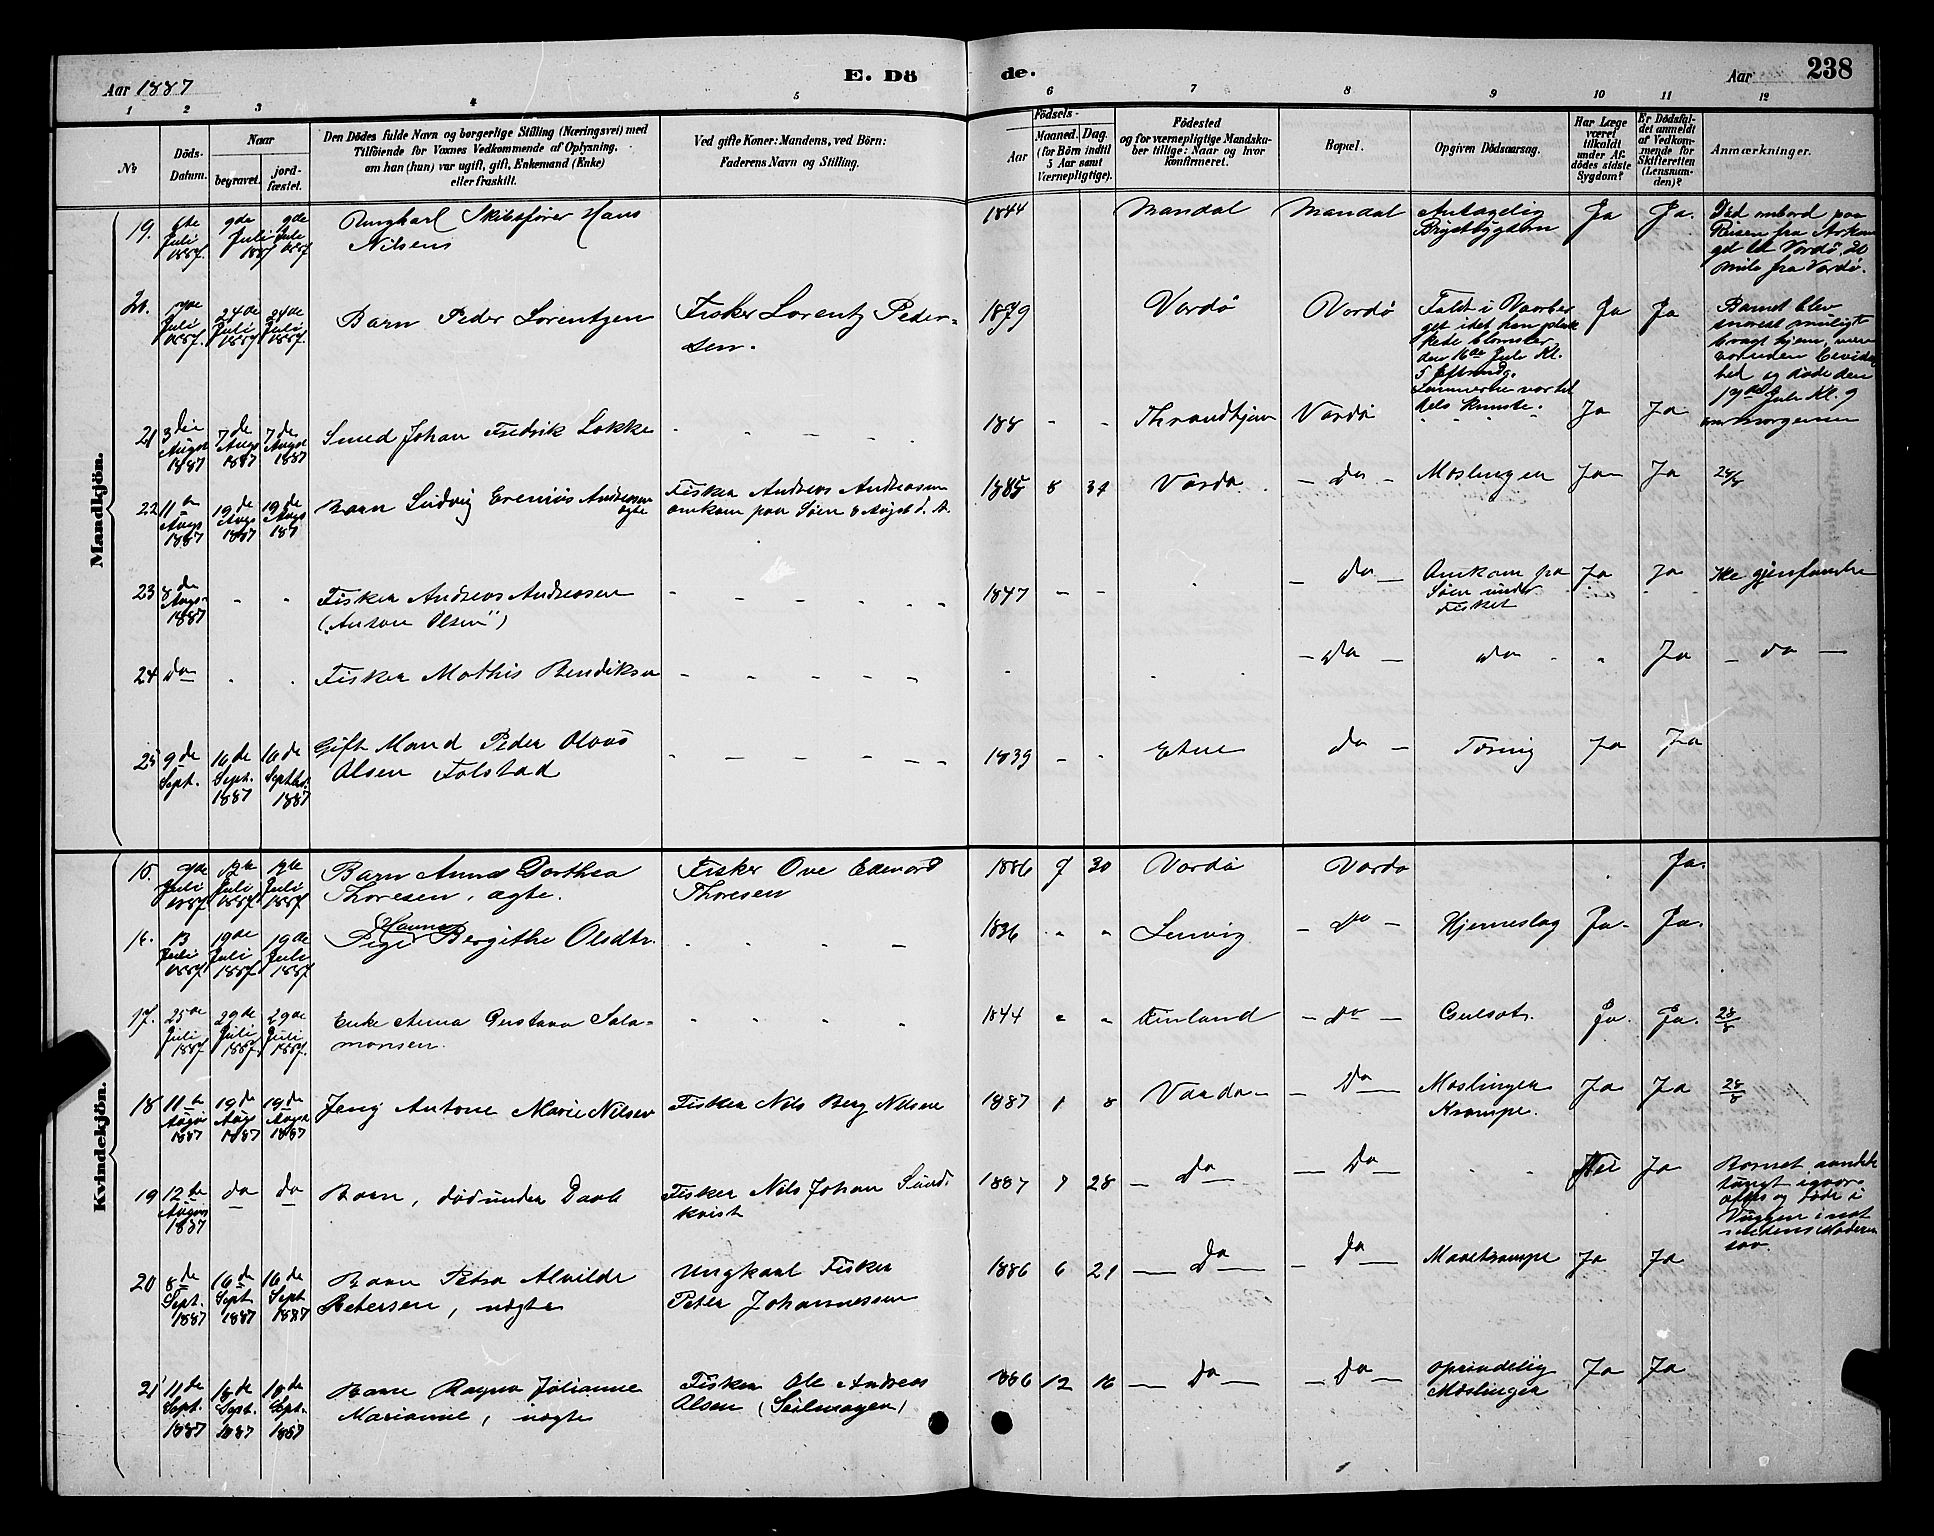 Aar 1887
E. Dö
de.
Aar
238
1 2 3 4 5 6 7 8 9 10 11 12
No
Döds-Datum.
Naar
begravet.
jord-fæstet.
Den Dödes fulde Navn og borgerlige Stilling (Næringsvei) med
Tilföiende for Voxnes Vedkommende af Oplysning,
om han (hun) var ugift, gift, Enkemand (Enke)
eller fraskilt.
Ved gifte Koner: Mandens, ved Börn:
Faderens Navn og Stilling.
Födsels-
Aar
Maaned.
Dag.
(for Börn indtil
5 Aar samt
Værnepligtige).
Födested
og for værnepligtige Mandska-
ber tillige: Naar og hvor
konfirmeret.
Bopæl.
Opgiven Dödsaarsag.
Har Læge
været
tilkaldt
under Af-
dödes sidste
Sygdom?
Er Dödsfal-
det anmeldt
af Vedkom-
mende for
Skifteretten
(Lensman-
den)?
Anmærkninger.
Mandkjön.
19. 6te Juli 1887. 9de Juli 1887 9de Juli 1887 Ungkarl Skibsfører Hans
Nilsens
1844 Mandal Mandal Antagelig
Brystbygden Ja Ja. Død ombord paa
Reisen fra Arkan
gel til Vardø, 20
mile fra Vardø.
20. Juli 1887. 24de Juli 1887 24de Juli 1887. Barn Peder Lorentzen Fisker Lorentz Peder-
sen. 1879 Vardö Vardö Faldt i Vaarber
get idet han pluk
kede blomster
den 16de Juli Kl.
5 Eftermdg.
Lemmerne var til
dels knuste. Ja Ja Barnet blev
snarest muligt
bragt hjem, men
var uden bevidst
hed og døde den
17de Juli Kl. 9
om morgenen
21 3die Augst 1887 7de Augs 1887 7de Augst 1887 Smed Johan Fredrik Lokke - - - - 188 - - Throndhjem Vardø Ja Ja
22 11te Augs 1887 19de Augs 1887 19de Augs 187 Barn Ludvig Erenius Andreasen
ægte Fisker Andreas Andreasen
omkom paa Søen 8 Augst d. A. 1885 8 31 Vardø. - Do - Mæslinger Ja Ja 28/8
23 8de Augs 1887 - - Fisker Andreas Andreasen
("Anton Olsen") - - - - - 1847 - - - Do - Omkom pa
Søen under
Fisket Ja Ja Ike gjenfundne
24 Do - - Fisker Mathis Bendiksen - - - - - - Do - Do - - Ja - Do -
25 9de Sept. 16de Sept. 1887 16de Septbr. 1887 Gift Mand Peder Olaus
Olsen Folstad - - - - - 1839 - - Etne Do - Tæring Ja Ja
Kvindekjön.
15. Juli 1887 Juli 1887 Juli 1887 Barn Anna Dorthea
Thoresen, ægte. Fisker Ove Edvard
Thoresen 1886 9 30 Vardö Vardö Ja.
16. 13 Juli 1887 19de Juli 1887 19de Juli 1887 Hanna
Pige Bergithe Olsdtr. - - - - 1836 - - Lenvig - Do - Hjerneslag Ja. Ja.
17. 25de Juli 1887 29de Juli 1887 29de Juli 1887. Enke Anna Gustava Salo-
monsen. - - - - 1844 - - Finland - Do - Gulsot. Ja. Ja. 28/8
18 11te Augst 1887 19de Aug 1887 19de Augst 1887 Jeny Antone Marie Nilsen Fisker Nils Berg Nilsen 1887 1 8 Vardø - - Do - Mæslinger
Krampe. Ja Ja 28/8
19 12de Augus 1887 Do Do Barn, død under Daab Fisker Nils Johan Sund-
kvist 1887 7 28 - Do - - Do - Nei Ja Barnet aandede
tungt igaar
aftes og døde i
Vuggen i nat
medens Moderen
sov.
20 8de Sept. 1887 16de Sept 1887 16de Sept 1887 Barn Petra Alvilde
Petersen, uægte Ungkarl Fisker
Peter Johannessen 1886 6 21 - Do - - Do - Mavekrampe Ja Ja
21 11de Sept. 1887 18de Sept. 1887 18de Sept. 1887 Barn Ragna Julianne
Marianne, uægte Fisker Ole Andreas
Olsen (Seilmager) 1886 12 16 - Do - - Do - oprindelig
Mæslinger Ja Ja